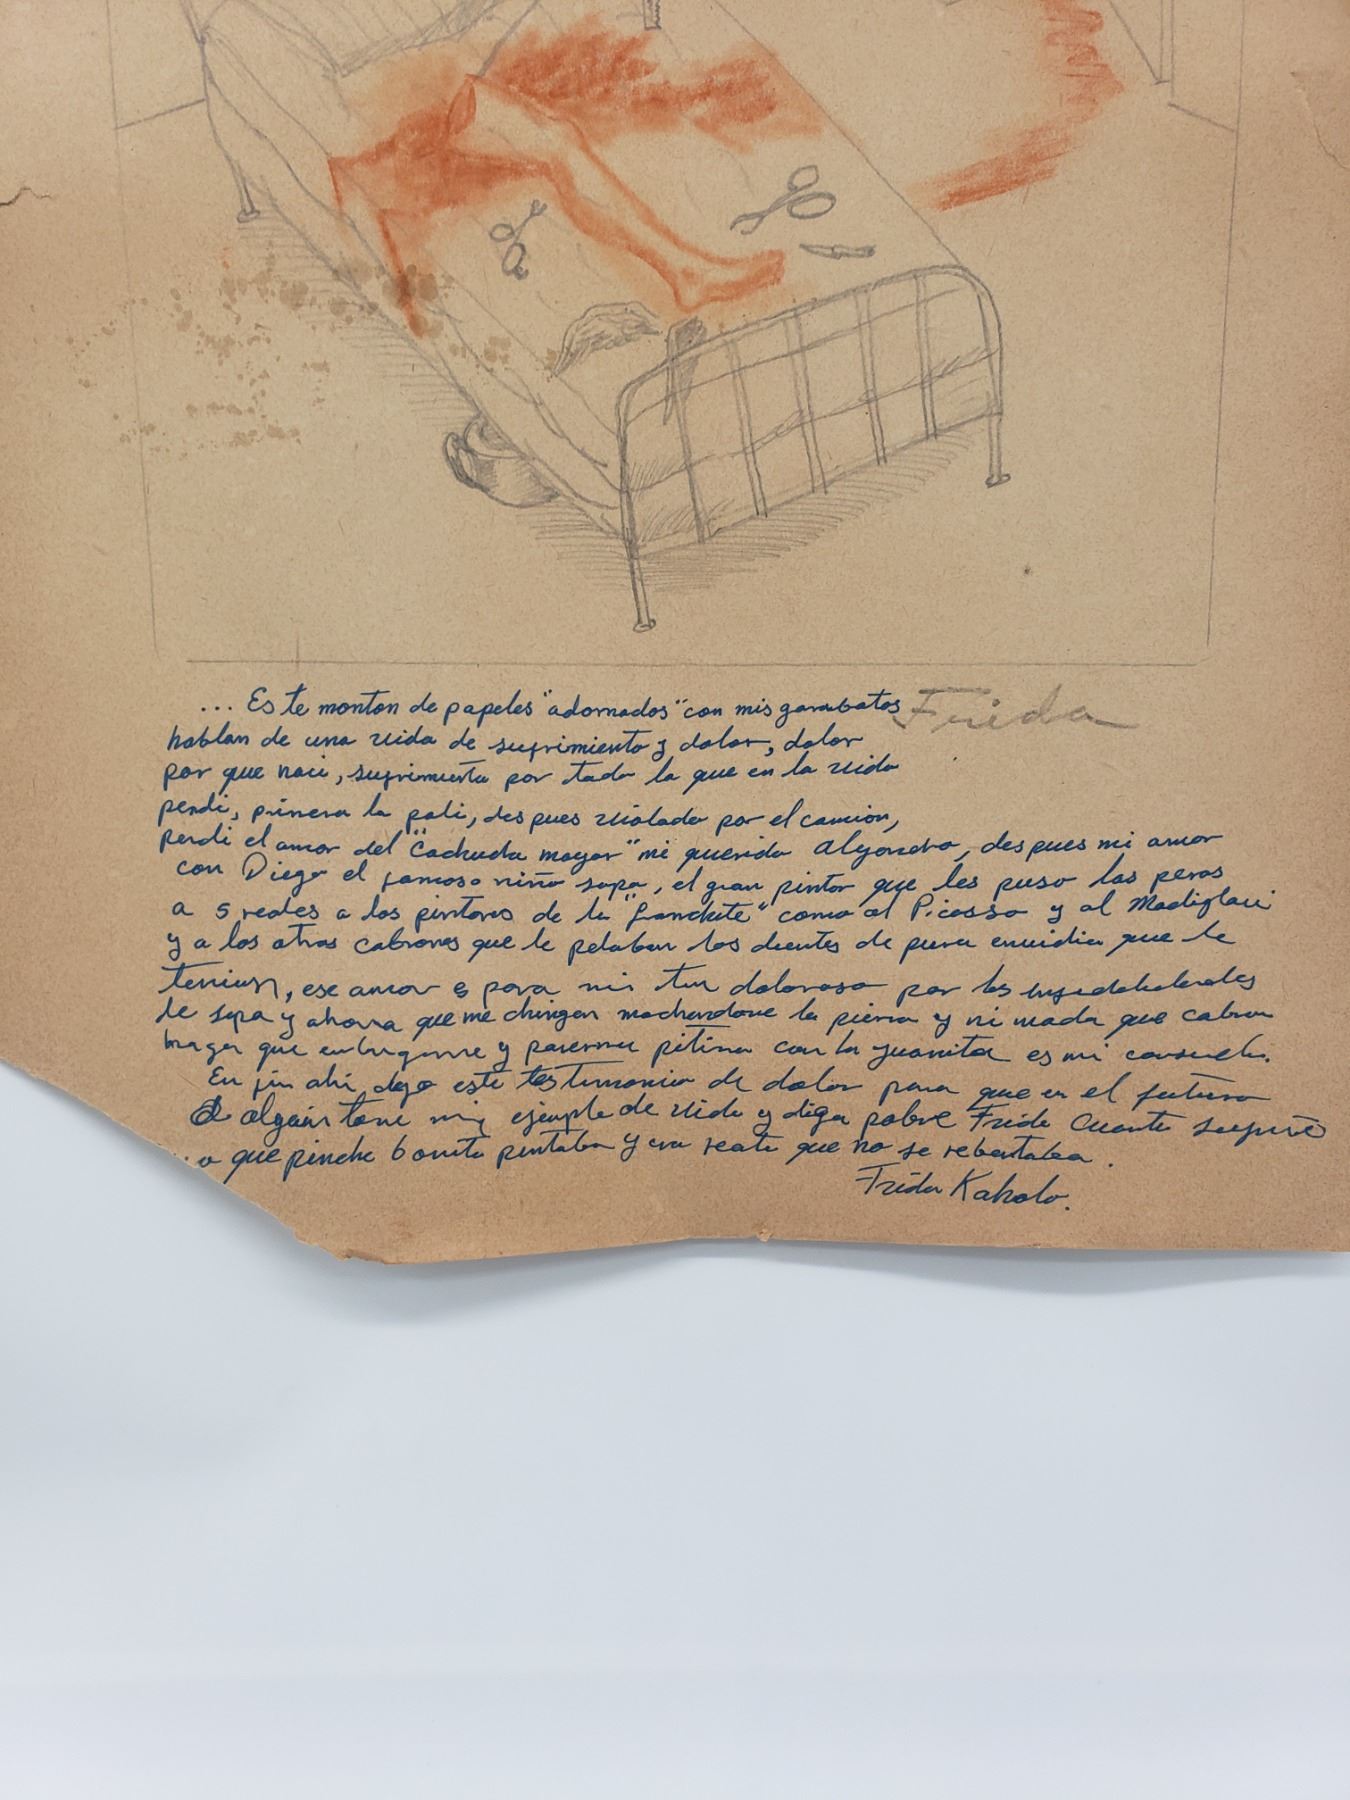 ... Es te monton de papeles "adornados" con mis garabatos
Frida
hablan de una vida de sufrimiento y dolor, dolor
por que naci, sufrimiento por todo lo que en la vida
perdi, primero la poli, despues violada por el camion,
perdi el amor del "Cachucha mayor" mi querido Alejandro, despues mi amor
con Diego el famoso niño sapo, el gran pintor que les puso las peras
a 5 reales a los pintores de la como al Picasso y al Modigliani
y a los otros cabrones que le pelaban los dientes de pura envidia que le
tenian, ese amor es para mi tan doloroso por las
de sapo y ahora que me chingan mochandome la pierna y ni nada que cabron
haga que y ponerme pitima con la juanita es mi consuelo.
En fin ahi dejo este testimonio de dolor para que en el futuro
alguien tome mi ejemplo de vida y diga pobre Frida cuanto sufrió
..o que pinche bonito pintaba y era reata que no se rebentaba.
Frida Kaholo.